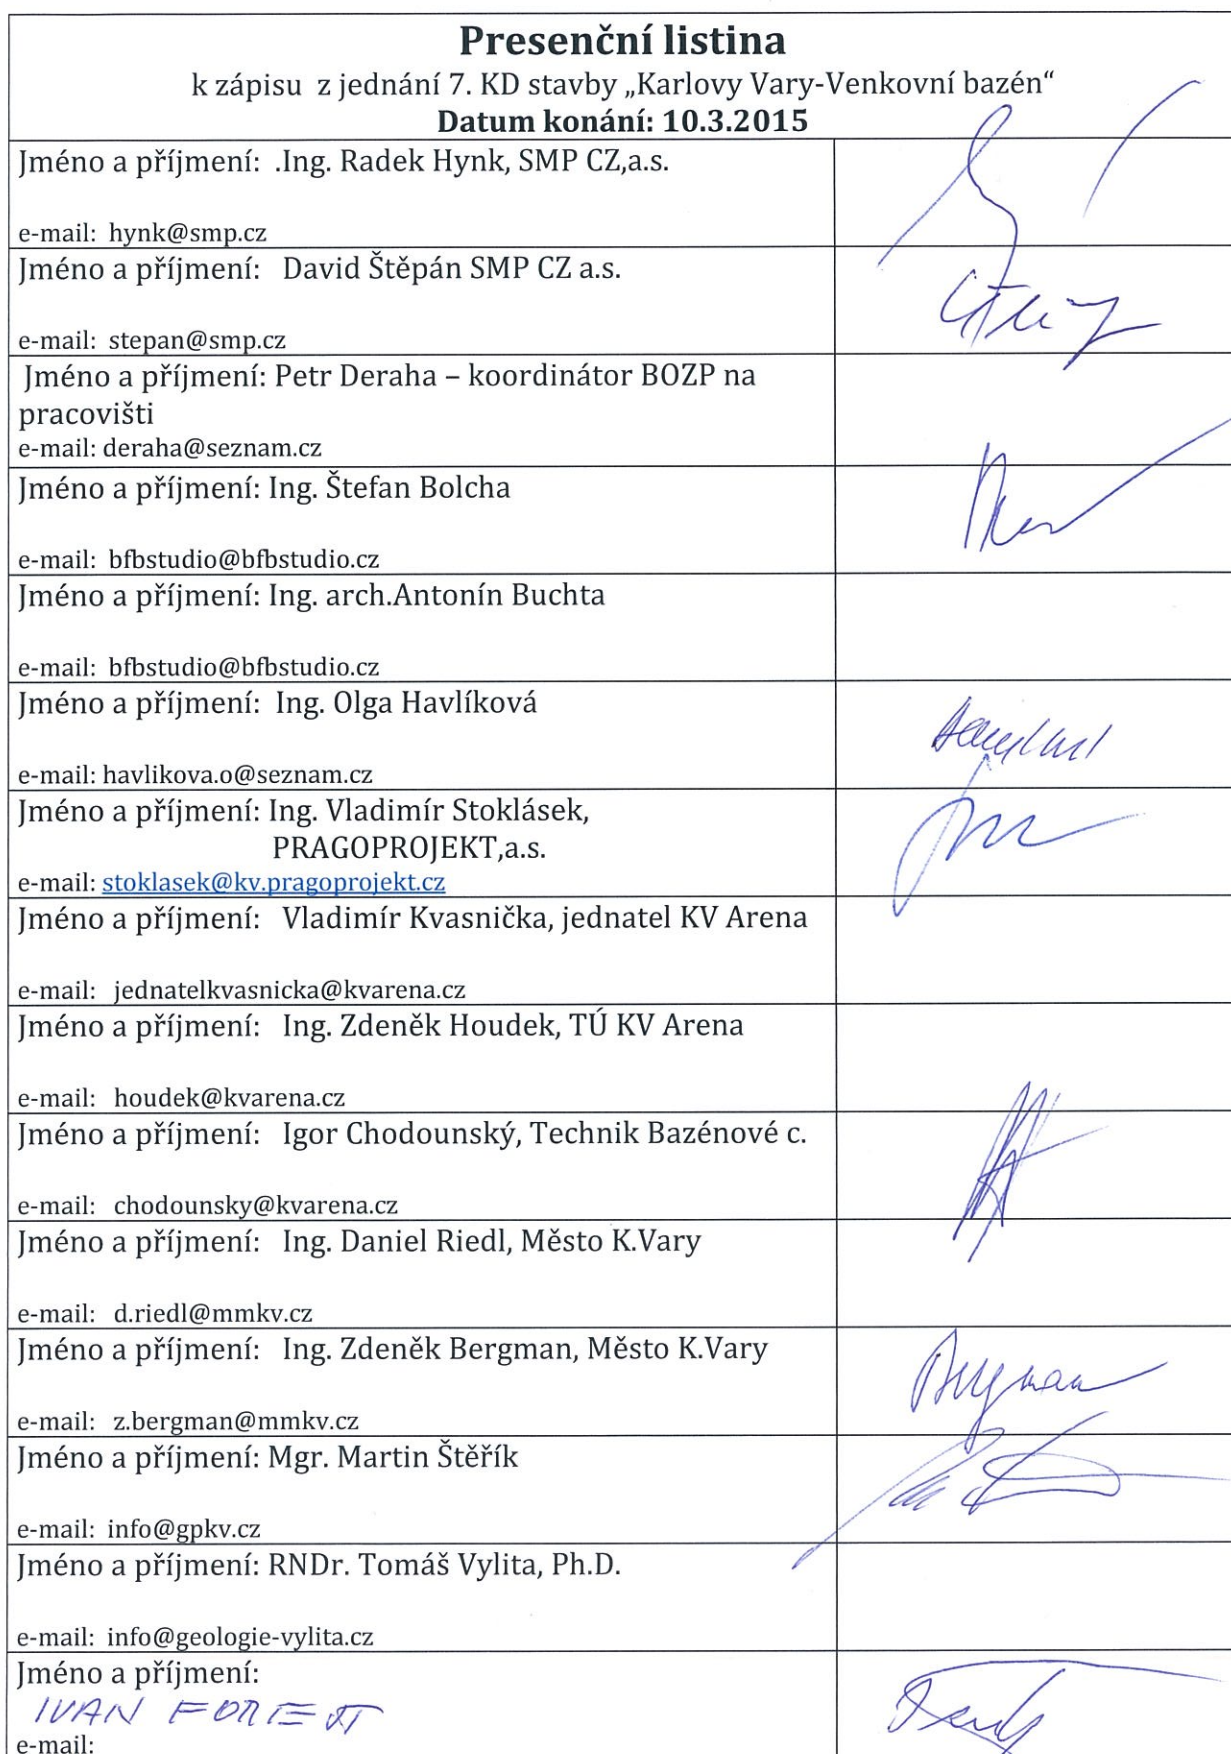 Presenční listina
k zápisu z jednání 7. KD stavby „Karlovy Vary-Venkovní bazén“
Datum konání: 10.3.2015
Jméno a příjmení: .Ing. Radek Hynk, SMP CZ,a.s.
e-mail: hynk@smp.cz
Jméno a příjmení: David Štěpán SMP CZ a.s.
e-mail: stepan@smp.cz
Jméno a příjmení: Petr Deraha – koordinátor BOZP na
pracovišti
e-mail: deraha@seznam.cz
Jméno a příjmení: Ing. Štefan Bolcha
e-mail: bfbstudio@bfbstudio.cz
Jméno a příjmení: Ing. arch.Antonín Buchta
e-mail: bfbstudio@bfbstudio.cz
Jméno a příjmení: Ing. Olga Havlíková
e-mail: havlikova.o@seznam.cz
Jméno a příjmení: Ing. Vladimír Stoklásek,
PRAGOPROJEKT,a.s.
e-mail: stoklasek@kv.pragoprojekt.cz
Jméno a příjmení: Vladimír Kvasnička, jednatel KV Arena
e-mail: jednatelkvasnicka@kvarena.cz
Jméno a příjmení: Ing. Zdeněk Houdek, TÚ KV Arena
e-mail: houdek@kvarena.cz
Jméno a příjmení: Igor Chodounský, Technik Bazénové c.
e-mail: chodounsky@kvarena.cz
Jméno a příjmení: Ing. Daniel Riedl, Město K.Vary
e-mail: d.riedl@mmkv.cz
Jméno a příjmení: Ing. Zdeněk Bergman, Město K.Vary
Bergman
e-mail: z.bergman@mmkv.cz
Jméno a příjmení: Mgr. Martin Štěřík
e-mail: info@gpkv.cz
Jméno a příjmení: RNDr. Tomáš Vylita, Ph.D.
e-mail: info@geologie-vylita.cz
Jméno a příjmení:
IVAN
e-mail: